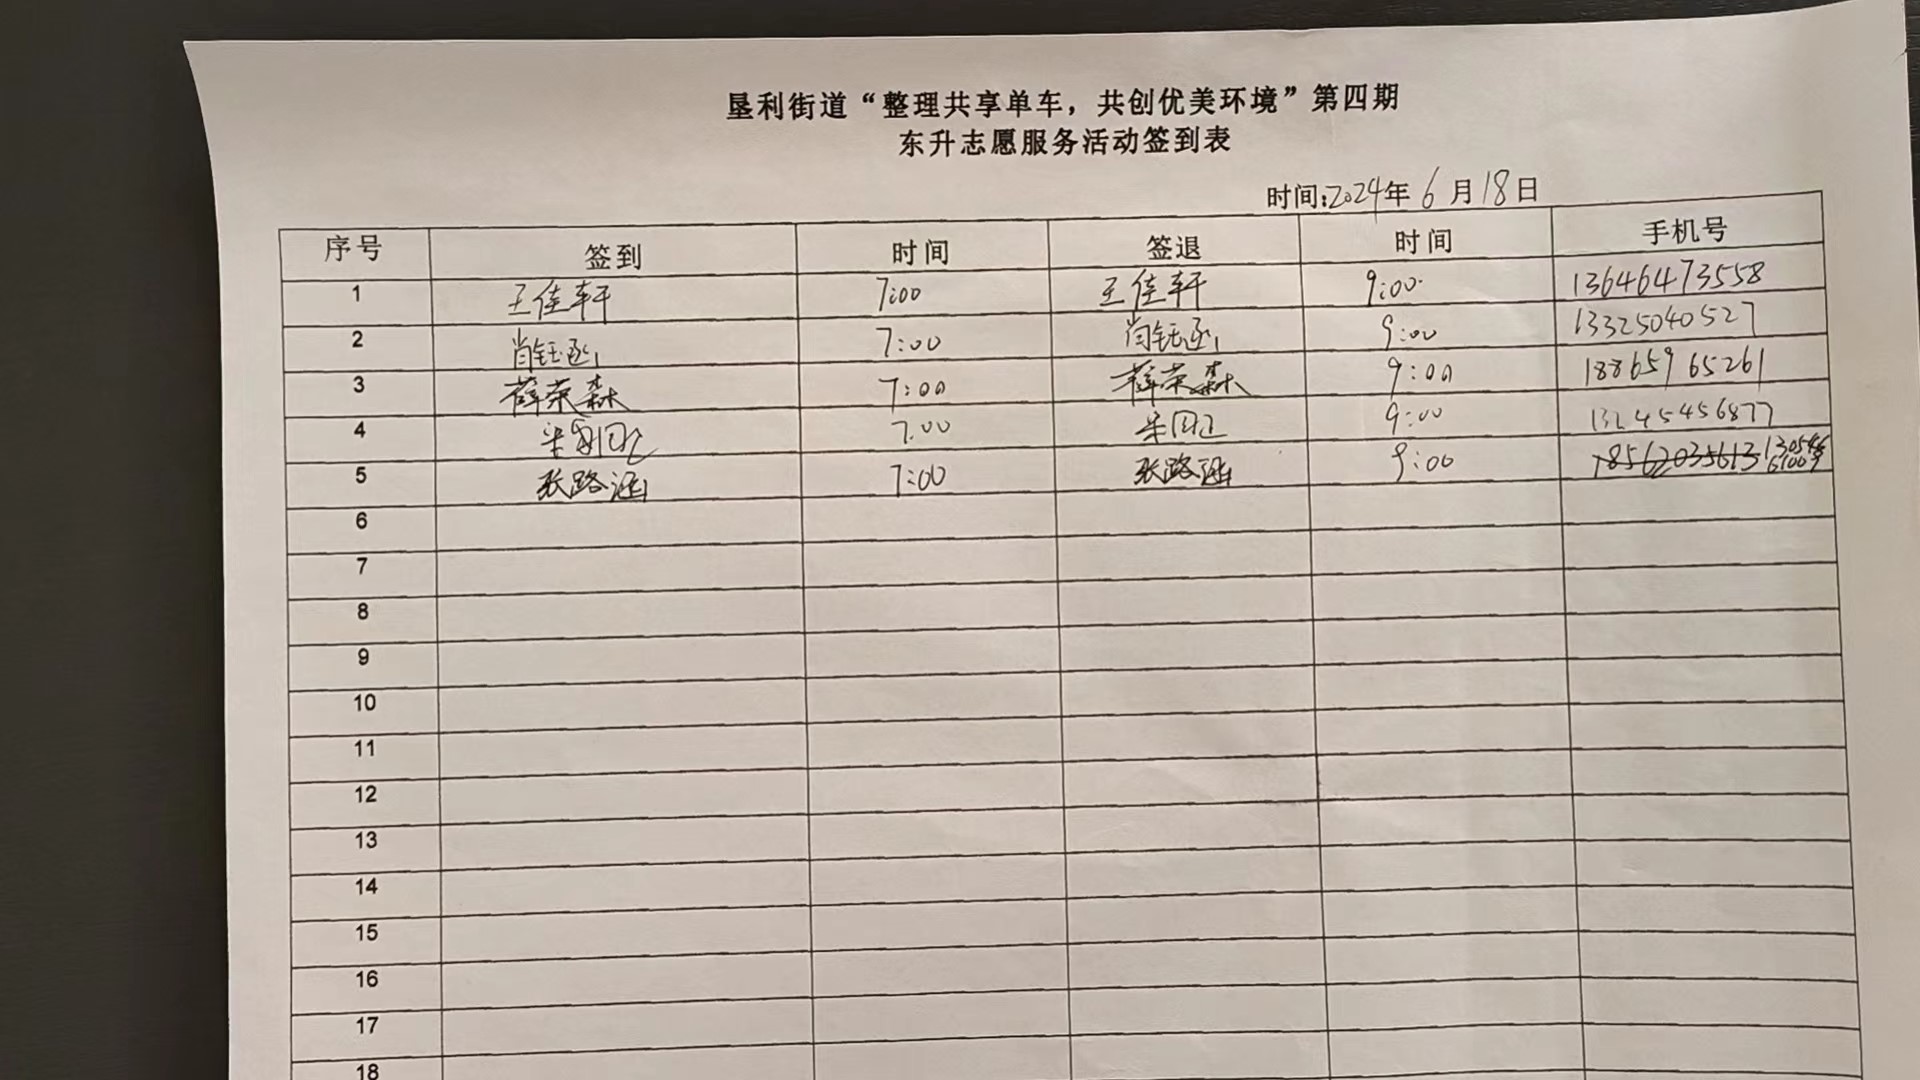 垦利街道“整理共享单车，共创优美环境”第四期
东升志愿服务活动签到表
时间:2024年6月18日
序号 签到 时间 签退 时间 手机号
1 王佳轩 7:00 王佳轩 9:00 13646473558
2 肖钰函 7:00 肖钰函 9:00 13325040527
3 薛荣森 7:00 薛荣森 9:00 18865965261
4 7:00 9:00
5 张路涵 7:00 张路涵 9:00 18562035613
6
7
8
9
10
11
12
13
14
15
16
17
18